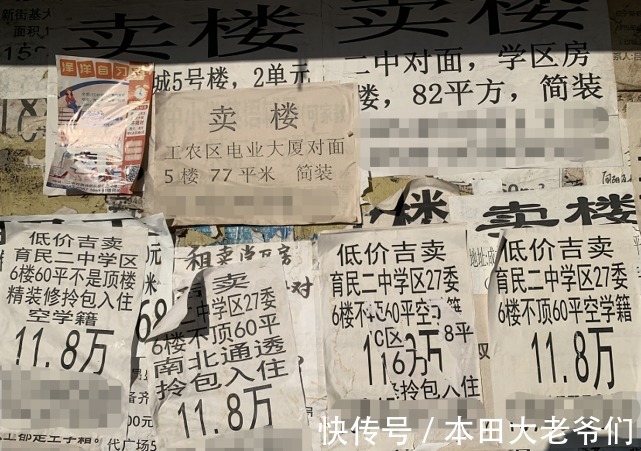 新街基大
面积
卖楼
城5号楼，2单元
卖楼
二中对面，学区房
楼，82平方，简装
洋洋自习
卖楼
工农区电业大厦对面
5楼 77平米 简装
米
卖楼
低价吉卖
育民二中学区
6楼60平不是顶楼
精装修拎包入住
空学籍
11.8万
元
米
68
租卖
卖
二中学区27委
6楼不顶60平
南北通透
拎包入住
11.8万
对
00元
代广场5
低价吉卖
育民二中学区27委
6楼不
60平空学
C区
8平
万
拎包入住
双
低价吉卖
育民二中学区27委
6楼不顶60平空学籍
11.8万
快传号 / 本田大老爷们